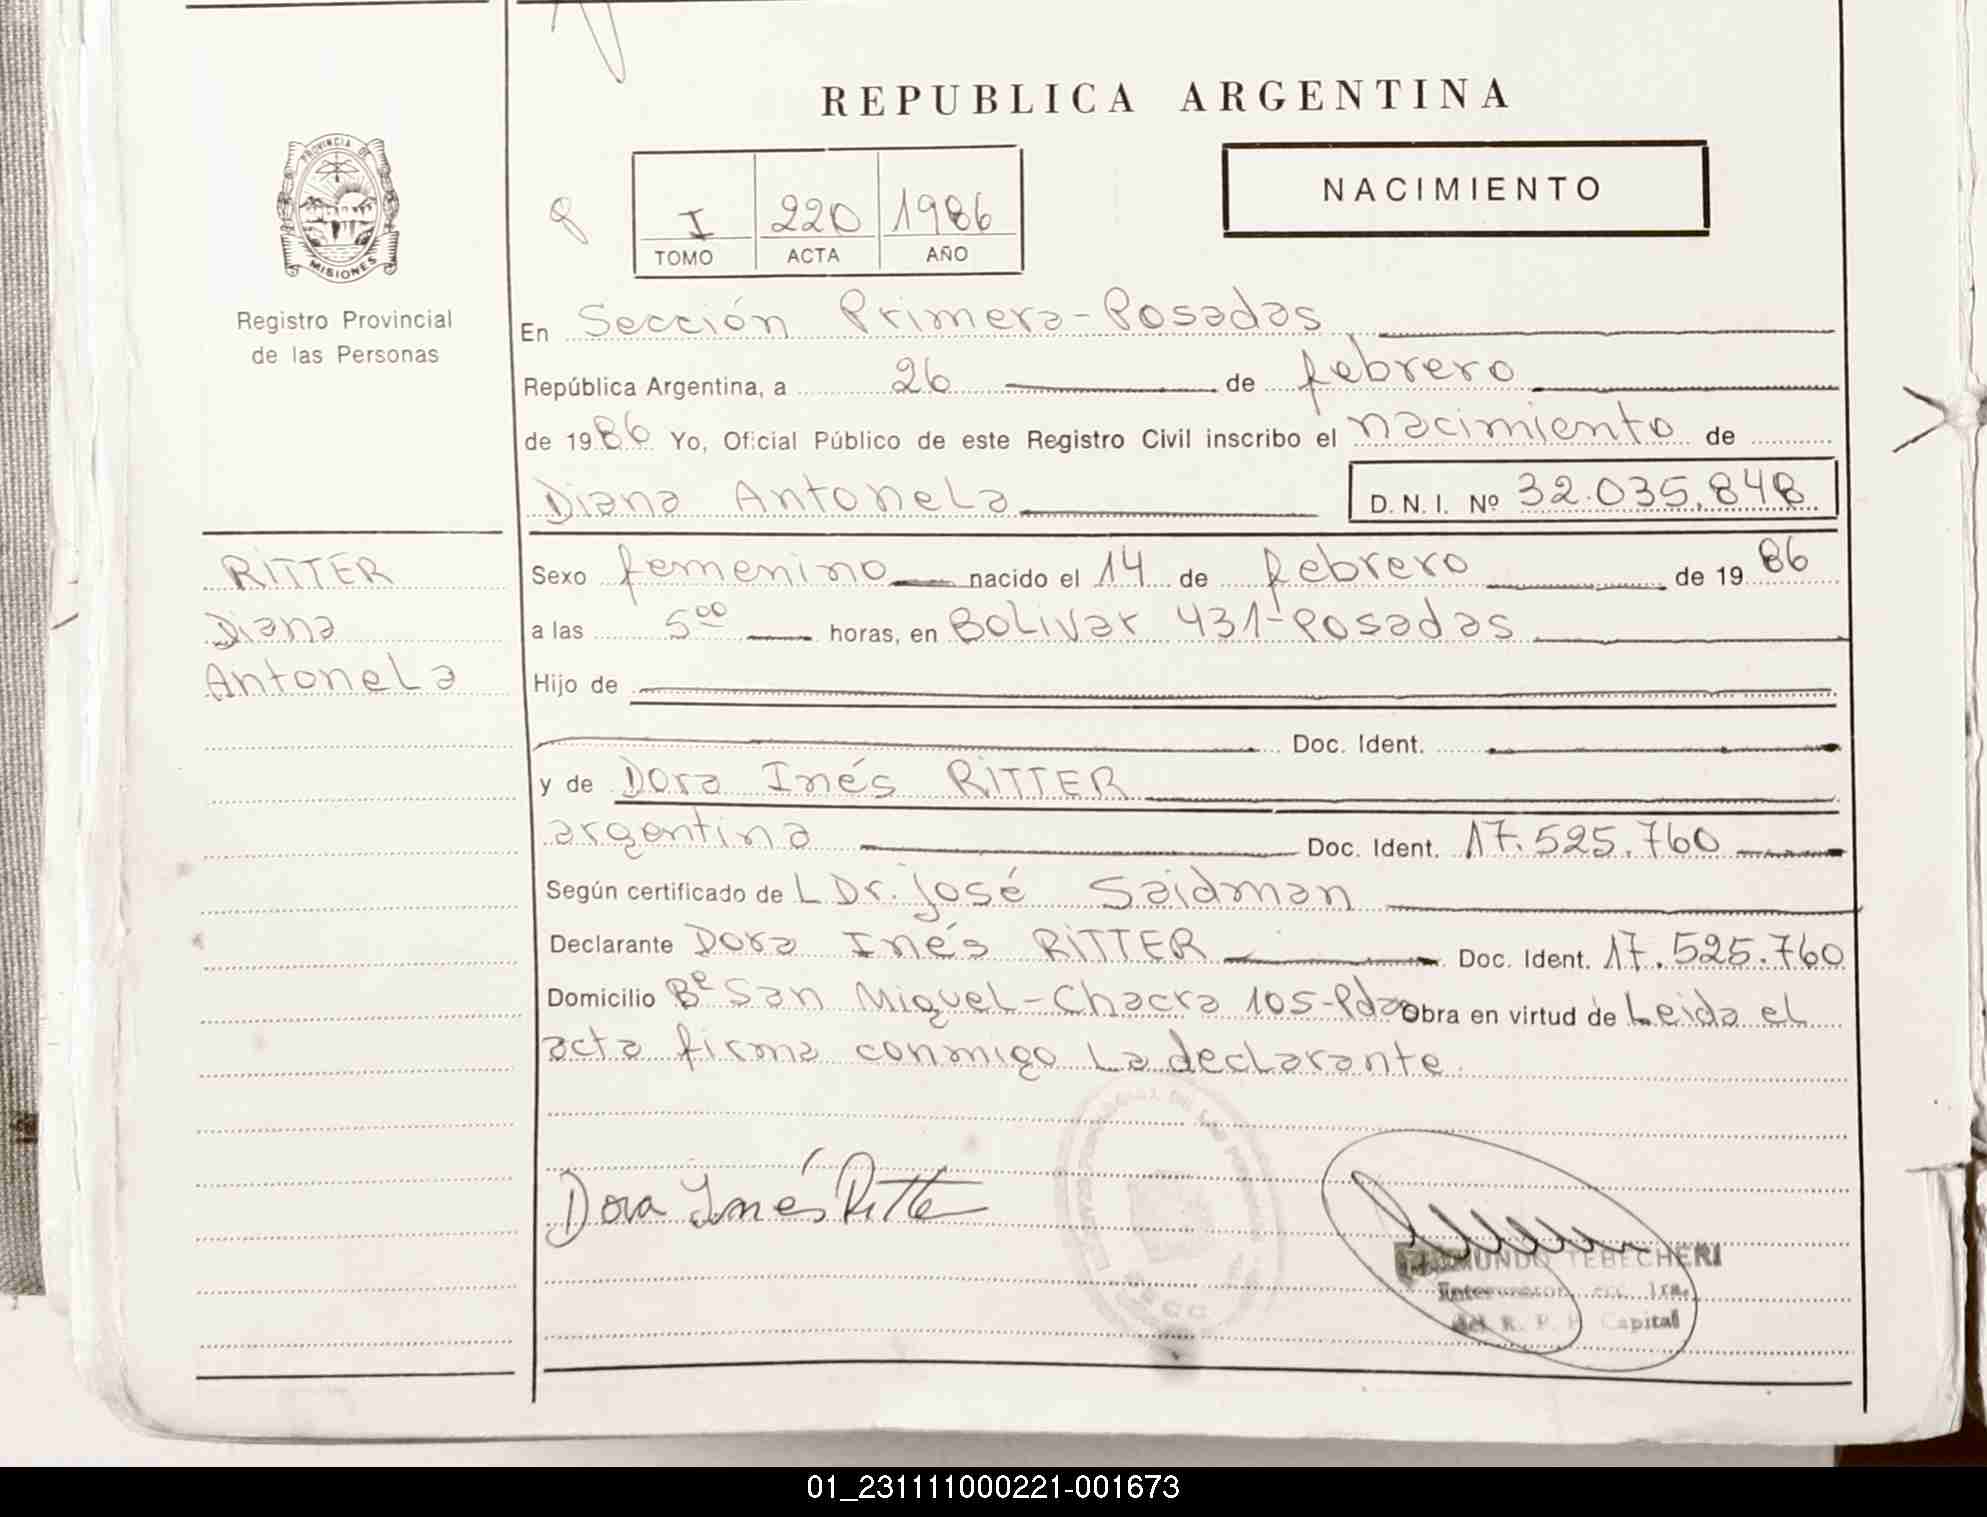 REPUBLICA ARGENTINA
NACIMIENTO
PROVINCIA DE
MISIONES
Registro Provincial
de las Personas
I 220 1986
TOMO ACTA AÑO
En Sección Primera-Posadas
República Argentina, a 26 de febrero
de 1986 Yo, Oficial Público de este Registro Civil inscribo el nacimiento de
Diana Antonela D. N. I. Nº 32.035.848
RITTER
Diana
Antonela
Sexo femenino nacido el 14 de febrero de 1986
a las 5⁰⁰ horas, en Bolivar 431-Posadas
Hijo de
Doc. Ident.
y de Dora Inés RITTER
argentina Doc. Ident. 17.525.760
Según certificado de L Dr. José Saidman
Declarante Dora Inés RITTER Doc. Ident. 17.525.760
Domicilio Bº San Miguel-Chacra 105-Pdas Obra en virtud de Leida el
acta firma conmigo La declarante.
Dora Inés Ritter
TEBECHERI
1ra.
del R. P. P. Capital
01_231111000221-001673